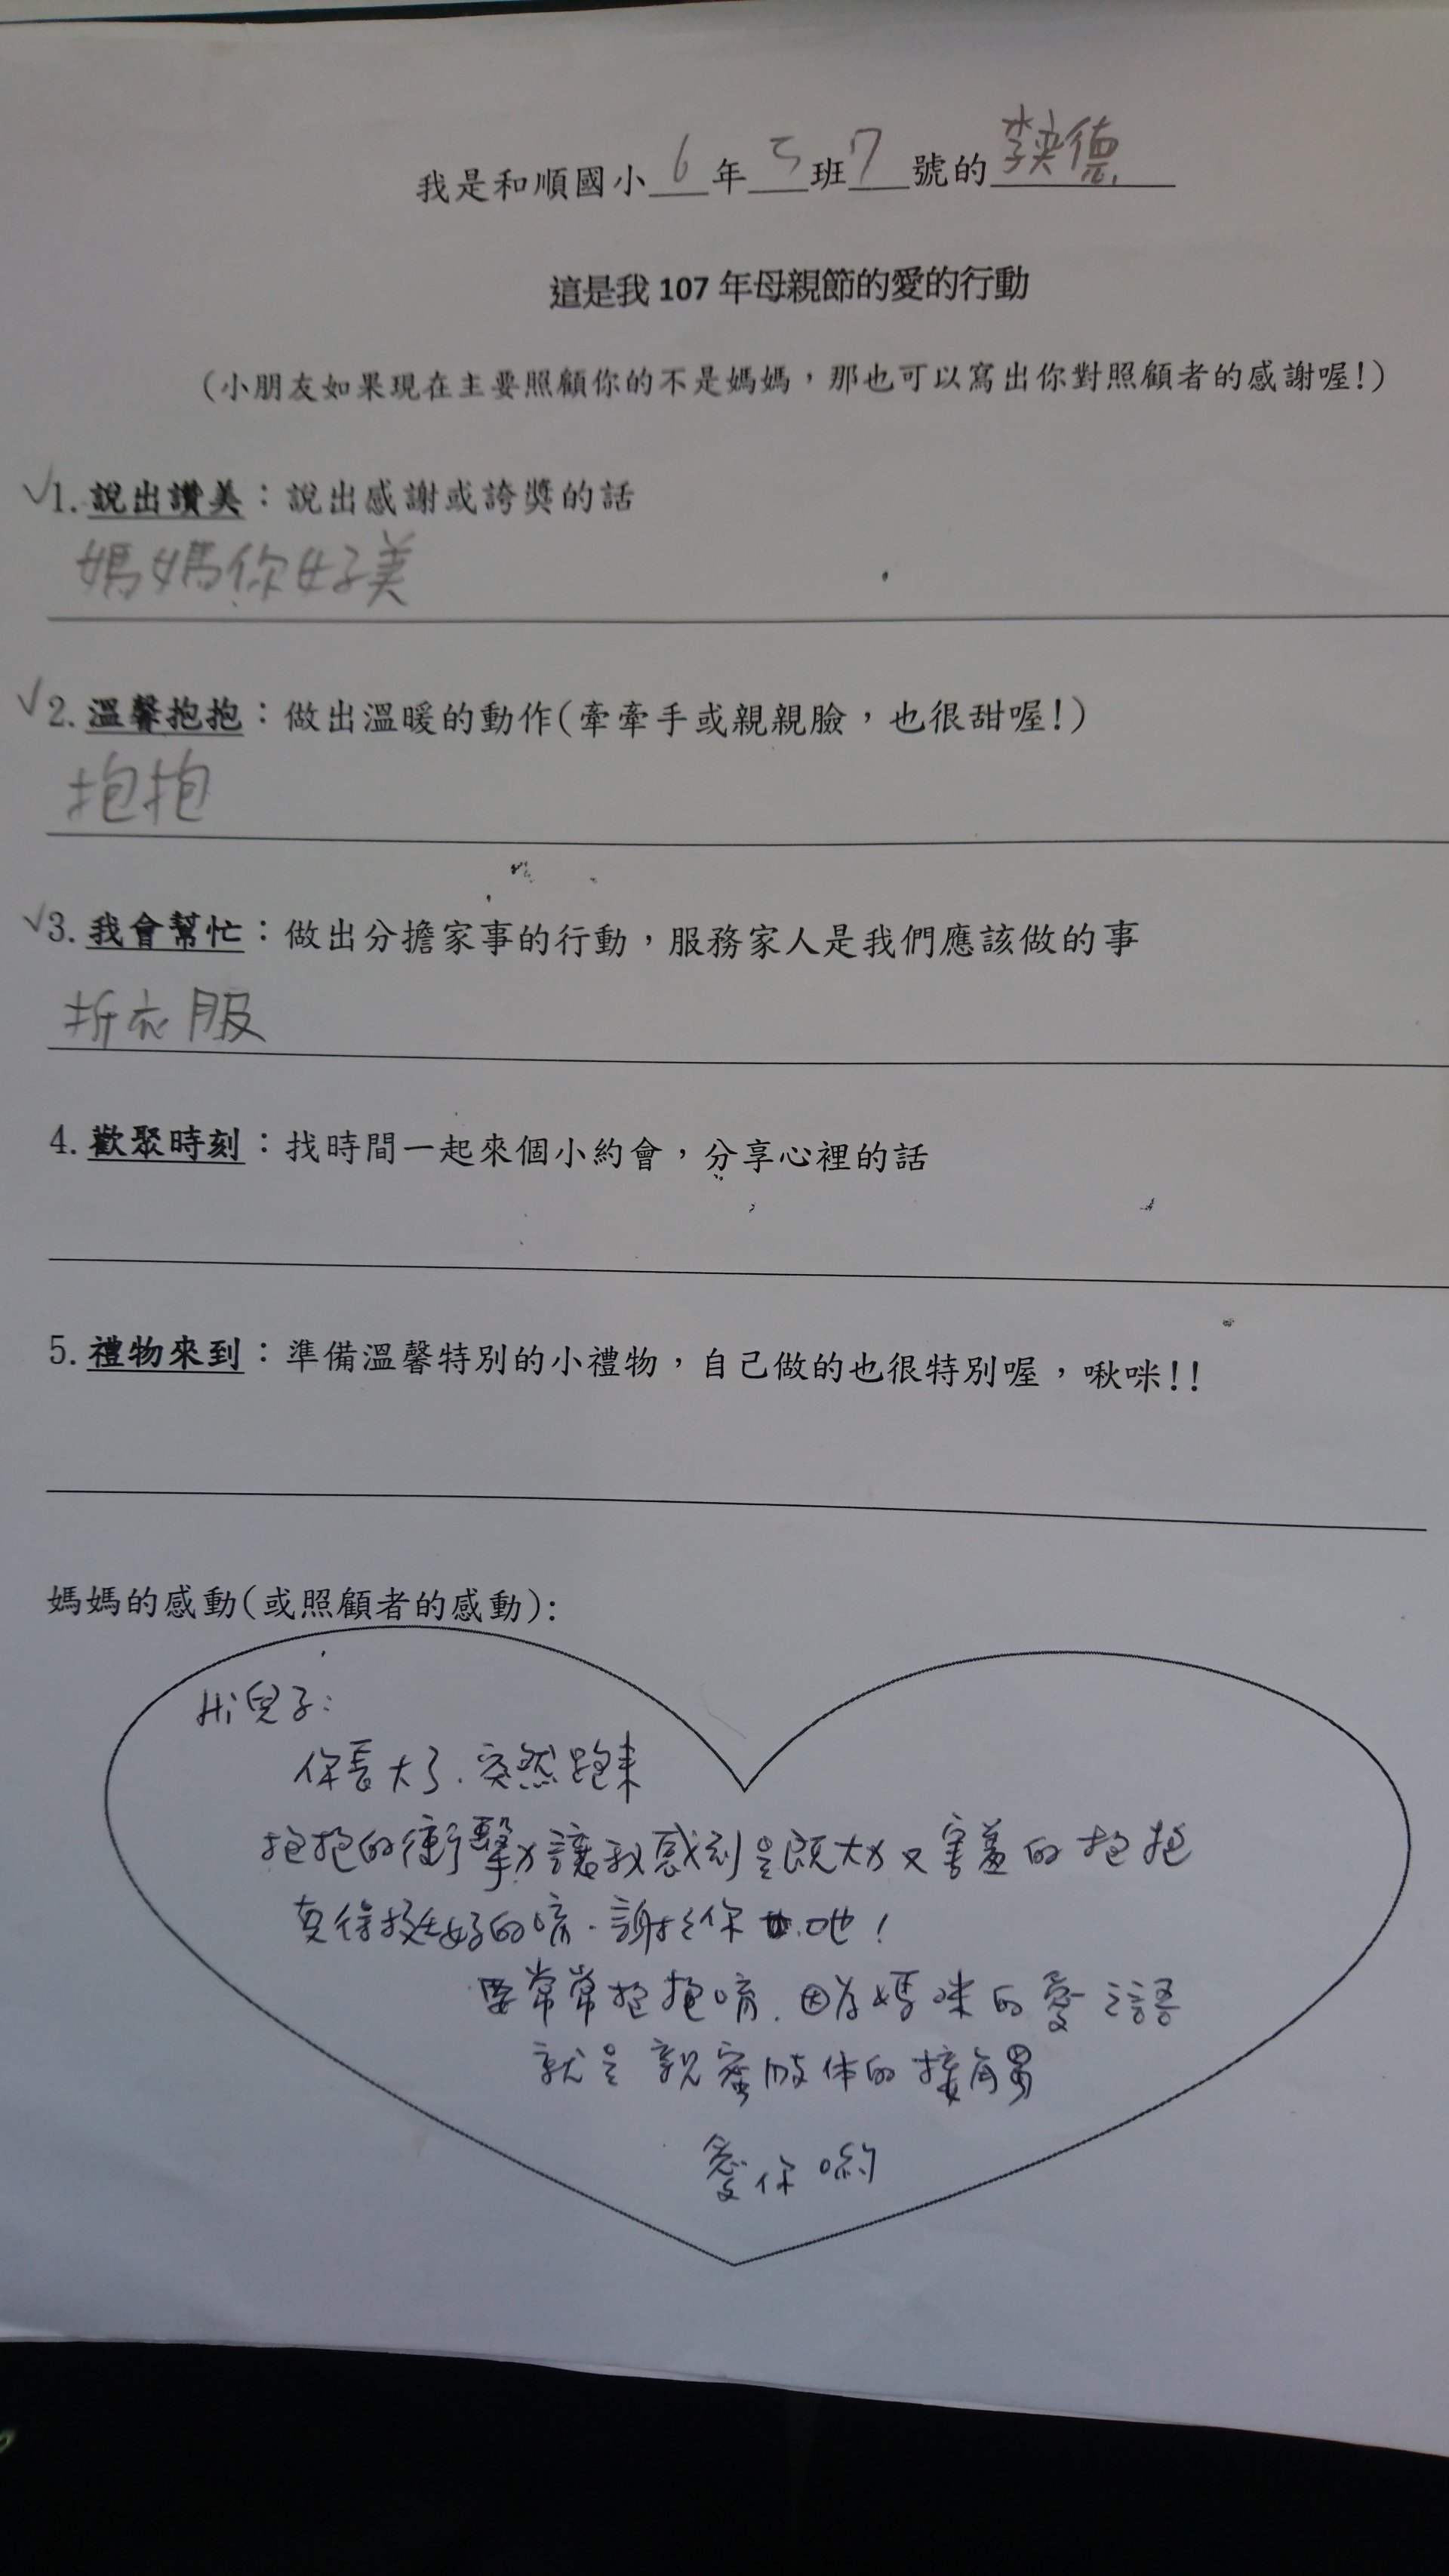 我是和順國小 6 年 5 班 7 號的 李奕德
這是我 107 年母親節的愛的行動
(小朋友如果現在主要照顧你的不是媽媽，那也可以寫出你對照顧者的感謝喔!)
✓1. 說出讚美：說出感謝或誇獎的話
媽媽你好美
✓2. 溫馨抱抱：做出溫暖的動作(牽牽手或親親臉，也很甜喔!)
抱抱
✓3. 我會幫忙：做出分擔家事的行動，服務家人是我們應該做的事
折衣服
4. 歡聚時刻：找時間一起來個小約會，分享心裡的話
5. 禮物來到：準備溫馨特別的小禮物，自己做的也很特別喔，啾咪!!
媽媽的感動(或照顧者的感動):
Hi 兒子:
你長大了.突然跑來
抱抱的衝擊力讓我感到是既大力又害羞的抱抱
真得挺好的唷.謝謝你 吔!
要常常抱抱唷.因為媽咪的愛之語
就是親蜜肢体的接觸
愛你喲